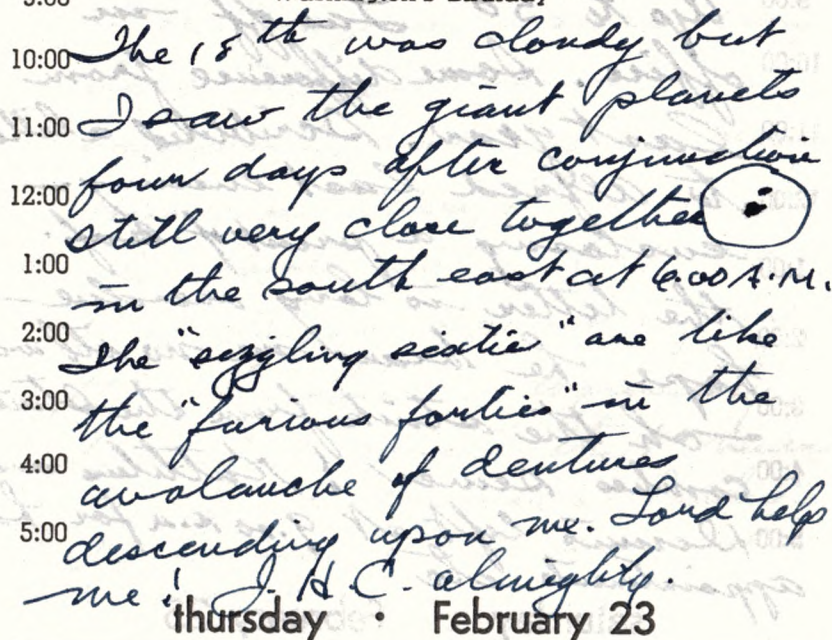 9:00
10:00 The 18th was cloudy but
11:00 I saw the giant planets
four days after conjunction
12:00 still very close together
1:00 in the south east at 6:00 A.M.
2:00 The "sizzling sixties" are like
3:00 the "furious forties" in the
4:00 avalanche of dentures
5:00 descending upon me. Lord help
me! J. H. C. almighty.
thursday · February 23